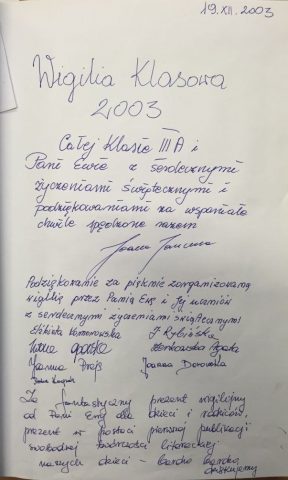 19.XII.2003
Wigilia Klasowa
2003
Całej Klasie III A i
Pani Ewie z serdecznymi
życzeniami świątecznymi i
podziękowaniami za wspaniałe
chwile spędzone razem
Joanna
Podziękowanie za pięknie zorganizowaną
wigilię przez Panią Ewę i Jej uczniów
z serdecznymi życzeniami świątecznymi
Elżbieta Komorowska J. Rybińska
Agata
Joanna
Za fantastyczny prezent wigilijny
od Pani Ewy dla dzieci i rodziców,
prezent w postaci pierwszej publikacji
swobodnej twórczości literackiej
naszych dzieci - bardzo bardzo
dziękujemy